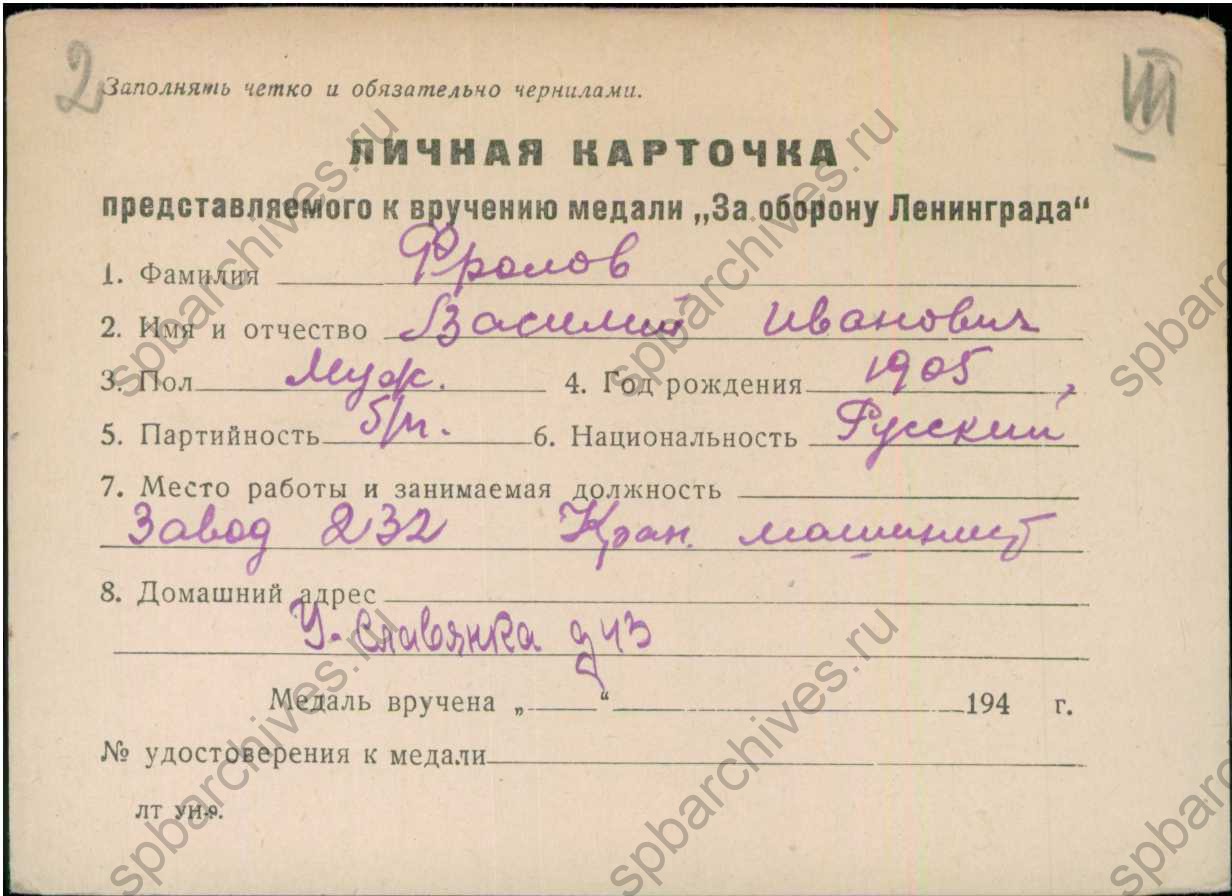 2
Заполнять четко и обязательно чернилами.
VII
ЛИЧНАЯ КАРТОЧКА
представляемого к вручению медали „За оборону Ленинграда“
1. Фамилия Фролов
2. Имя и отчество Василий Иванович
3. Пол Муж. 4. Год рождения 1905
5. Партийность б/п. 6. Национальность Русский
7. Место работы и занимаемая должность
Завод 232 Кран. машинист
8. Домашний адрес
У-Славянка д 43
Медаль вручена „ “ 194 г.
№ удостоверения к медали
ЛТ УН-9.
spbarchives.ru